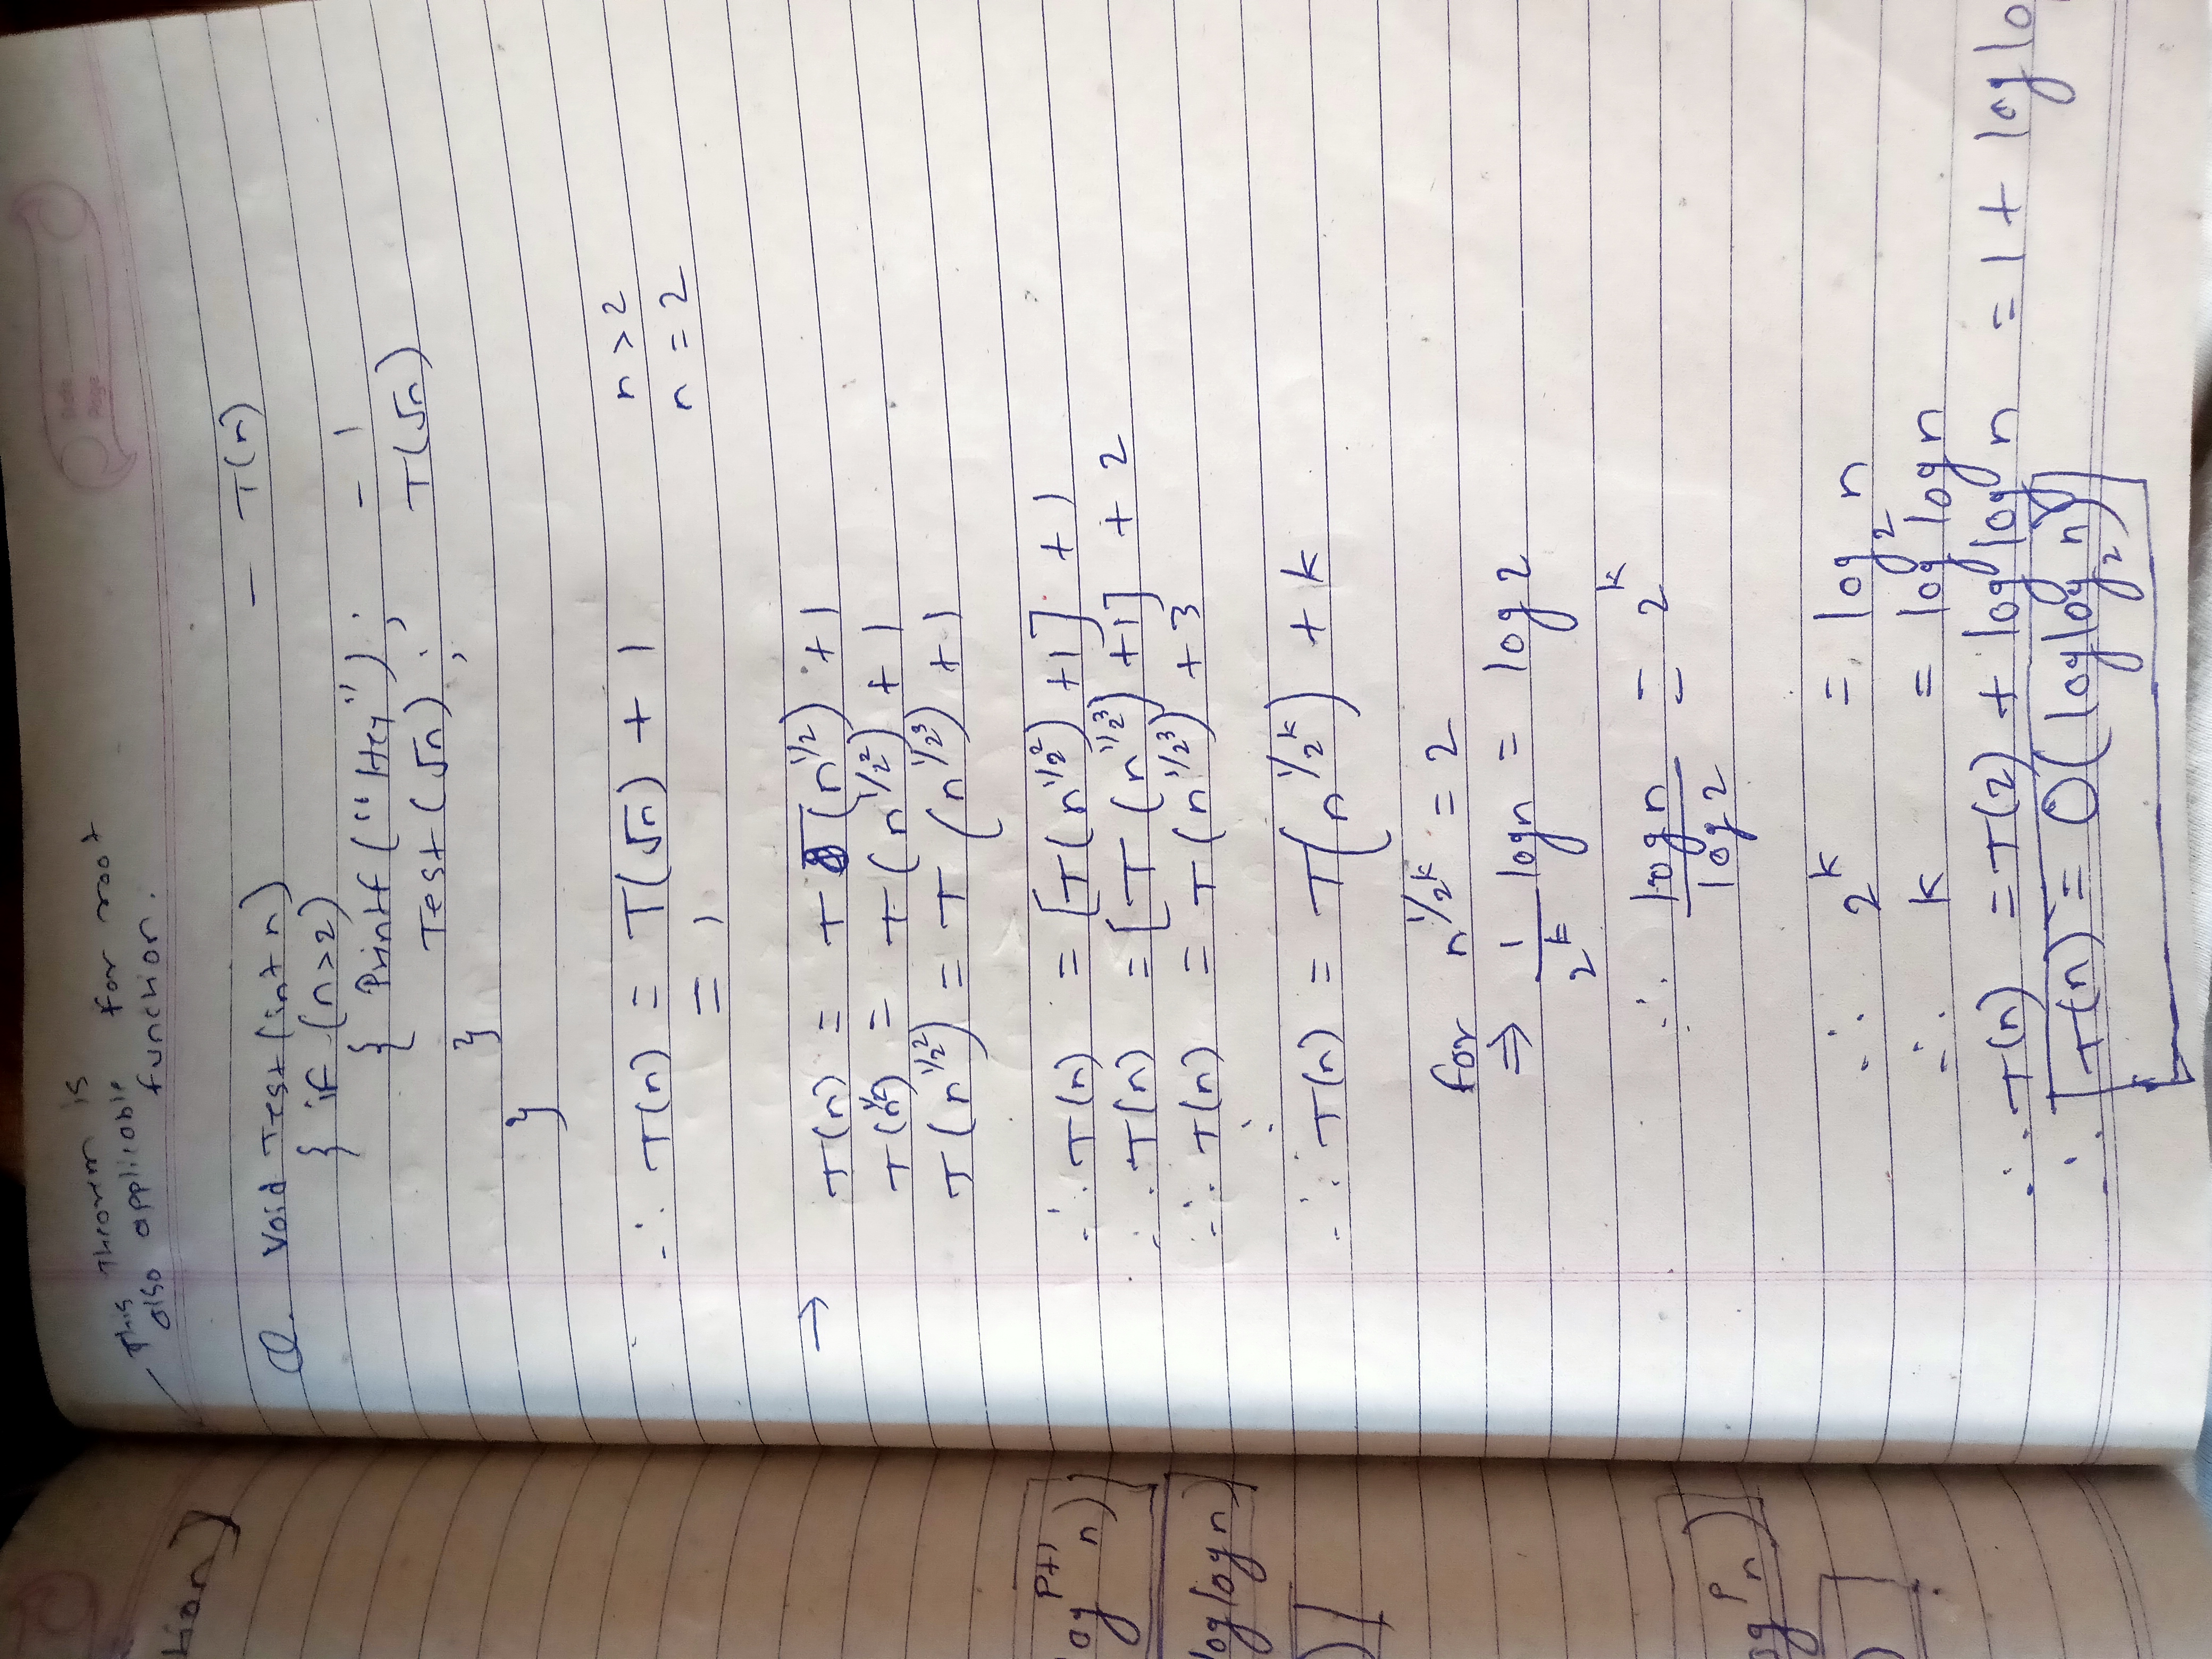 This theorem is
also applicable for root
function.
Q. Void Test (int n) - T(n)
{ if (n>2)
{ Printf ("Hey"); - 1
Test (√n); T(√n)
}
}
∴ T(n) = T(√n) + 1 n>2
= 1 n=2
→ T(n) = T(n^1/2) + 1
T(n^1/2) = T(n^1/2²) + 1
T(n^1/2²) = T(n^1/2³) + 1
∴ T(n) = [T(n^1/2²) +1] + 1
∴ T(n) = [T(n^1/2³) +1] + 2
∴ T(n) = T(n^1/2³) + 3
∴ T(n) = T(n^1/2^k) + k
for n^1/2^k = 2
⇒ 1/2^k log n = log 2
∴ log n / log 2 = 2^k
∴ 2^k = log₂ n
∴ k = log log n
∴ T(n) = T(2) + log log n = 1 + log lo
∴ T(n) = O(log log₂ n)
tion)
og^p+1 n)
log log n)
og^p n)